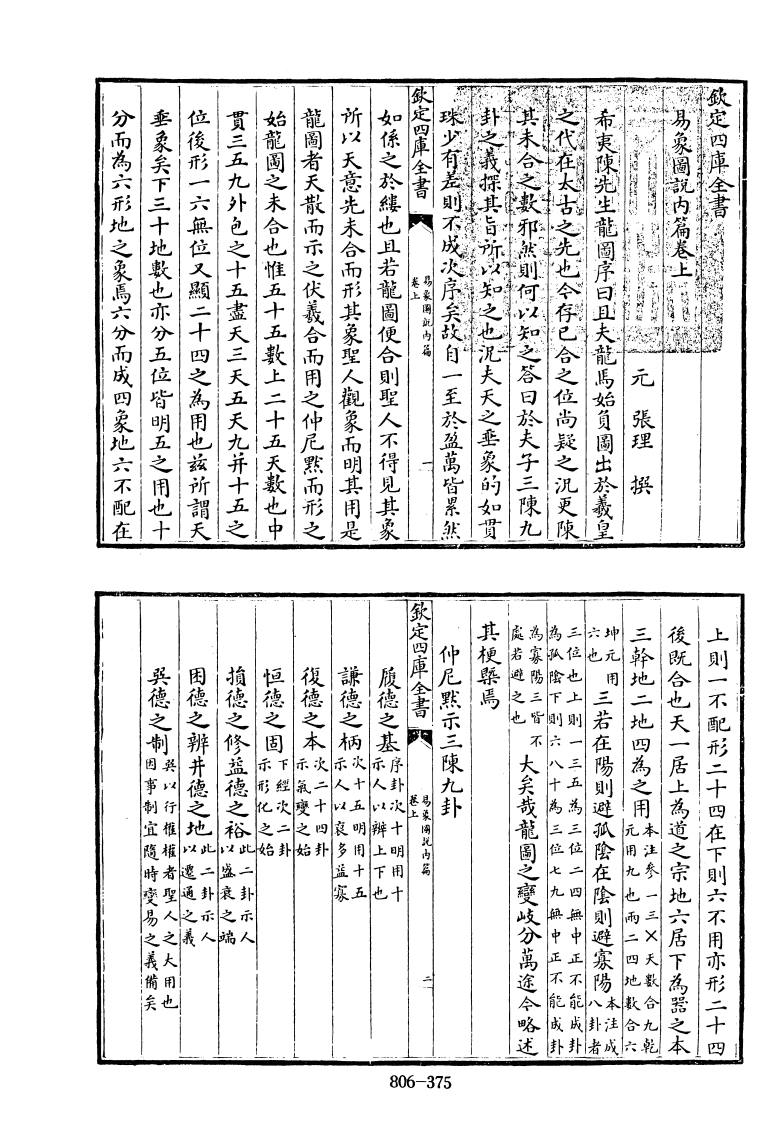 欽定四庫全書
易象圖說內篇卷上
元 張理 撰
希夷陳先生龍圖序曰且夫龍馬始負圖出於羲皇
之代在太古之先也今存已合之位尚疑之況更陳
其未合之數邪然則何以知之答曰於夫子三陳九
卦之義探其旨所以知之也況夫天之垂象的如貫
珠少有差則不成次序矣故自一至於盈萬皆累然
欽定四庫全書
易象圖說內篇
卷上
一
如係之於縷也且若龍圖便合則聖人不得見其象
所以天意先未合而形其象聖人觀象而明其用是
龍圖者天散而示之伏羲合而用之仲尼默而形之
始龍圖之未合也惟五十五數上二十五天數也中
貫三五九外包之十五盡天三天五天九并十五之
位後形一六無位又顯二十四之為用也兹所謂天
垂象矣下三十地數也亦分五位皆明五之用也十
分而為六形地之象焉六分而成四象地六不配在
上則一不配形二十四在下則六不用亦形二十四
後既合也天一居上為道之宗地六居下為器之本
三幹地二地四為之用
本注參一三㐅天數合九乾
元用九也兩二四地數合六
坤元用
六也
三若在陽則避孤陰在陰則避寡陽
本注成
八卦者
三位也上則一三五為三位二四無中正不能成卦
為孤陰下則六八十為三位七九無中正不能成卦
為寡陽三皆不
處若避之也
大矣哉龍圖之變岐分萬途今略述
其梗槩焉
仲尼默示三陳九卦
欽定四庫全書
易象圖說內篇
卷上
二
履德之基
序卦次十明用十
示人以辨上下也
謙德之柄
次十五明用十五
示人以裒多益寡
復德之本
次二十四卦
示氣變之始
恒德之固
下經次二卦
示形化之始
損德之修益德之裕
此二卦示人
以盛衰之端
困德之辨井德之地
此二卦示人
以遷通之義
巽德之制
巽以行權權者聖人之大用也
因事制宜隨時變易之義備矣
806-375